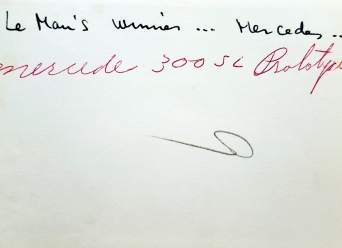 Le Man's Winner ... Mercedes ..
mercede 300 SL Prototype